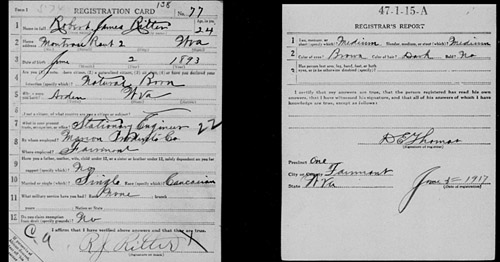 Form 1
REGISTRATION CARD
138
No. 77
1 Name in full Robert James Ritter Age, in yrs. 24
2 Home address Montrose Rout 2 WVa
3 Date of birth June 2 1893
(specify which)? Natural Born
5 Arden WVa
7 What is your present trade, occupation, or office? Stationary Engineer
22
8 By whom employed? Marion Products Co.
Where employed? Fairmont
9 Have you a father, mother, wife, child under 12, or a sister or brother under 12, solely dependent on you for
support (specify which)? No
10 Married or single (which)? Single Race (specify which)? Caucasian
11 What military service have you had? Rank None ; branch
years ; Nation or State
12 Do you claim exemption
(specify grounds)? No
I affirm that I have verified above answers and that they are true.
R J Ritter
(Signature or mark)
47-1-15-A
REGISTRAR'S REPORT
1 Medium Slender, medium, or stout (which)? Medium
2 Color of eyes? Brown Color of hair? Dark Bald? No
3 Has person lost arm, leg, hand, foot, or both
eyes, or is he otherwise disabled (specify)?
I certify that my answers are true, that the person registered has read his own
answers, that I have witnessed his signature, and that all of his answers of which I have
knowledge are true, except as follows:
D E Thomas
(Signature of registrar)
Precinct One
City or County Fairmont
State WVa
June 5 - 1917
(Date of registration)